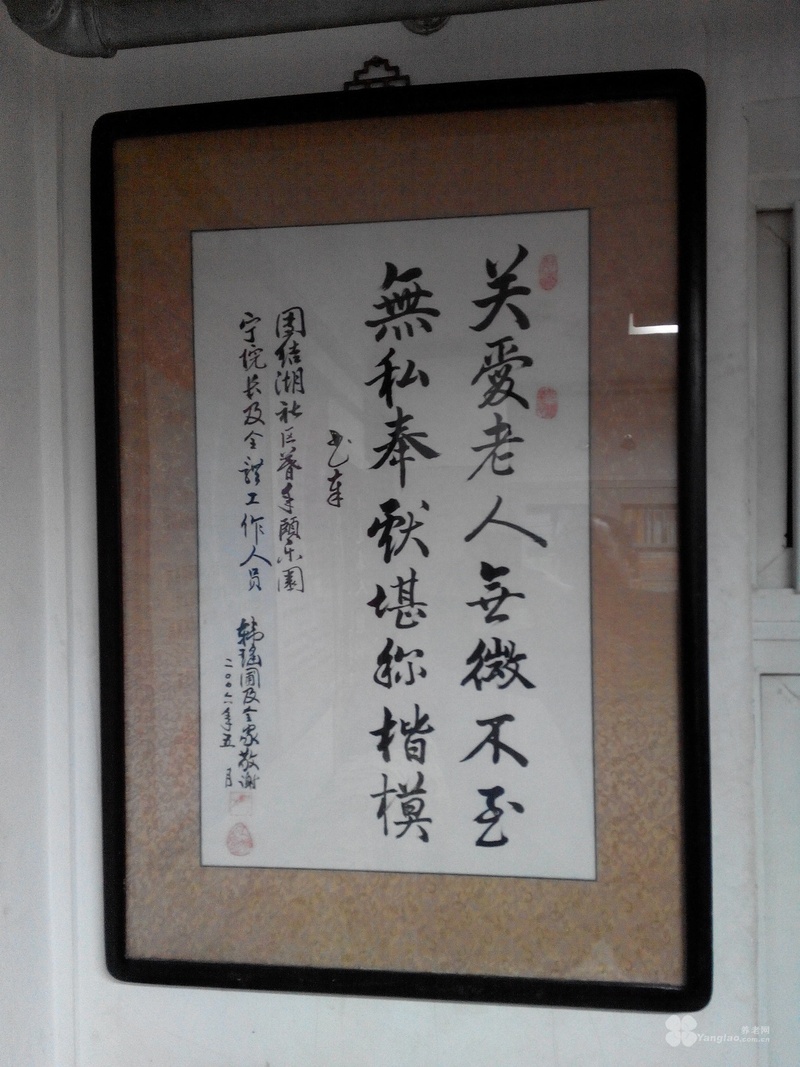 关爱老人無微不至
無私奉献堪称楷模
书奉
团结湖社区暮年颐乐园
宁院长及全体工作人员
韩瑶圃及全家敬谢
二〇〇六年五月
养老网
Yanglao.com.cn